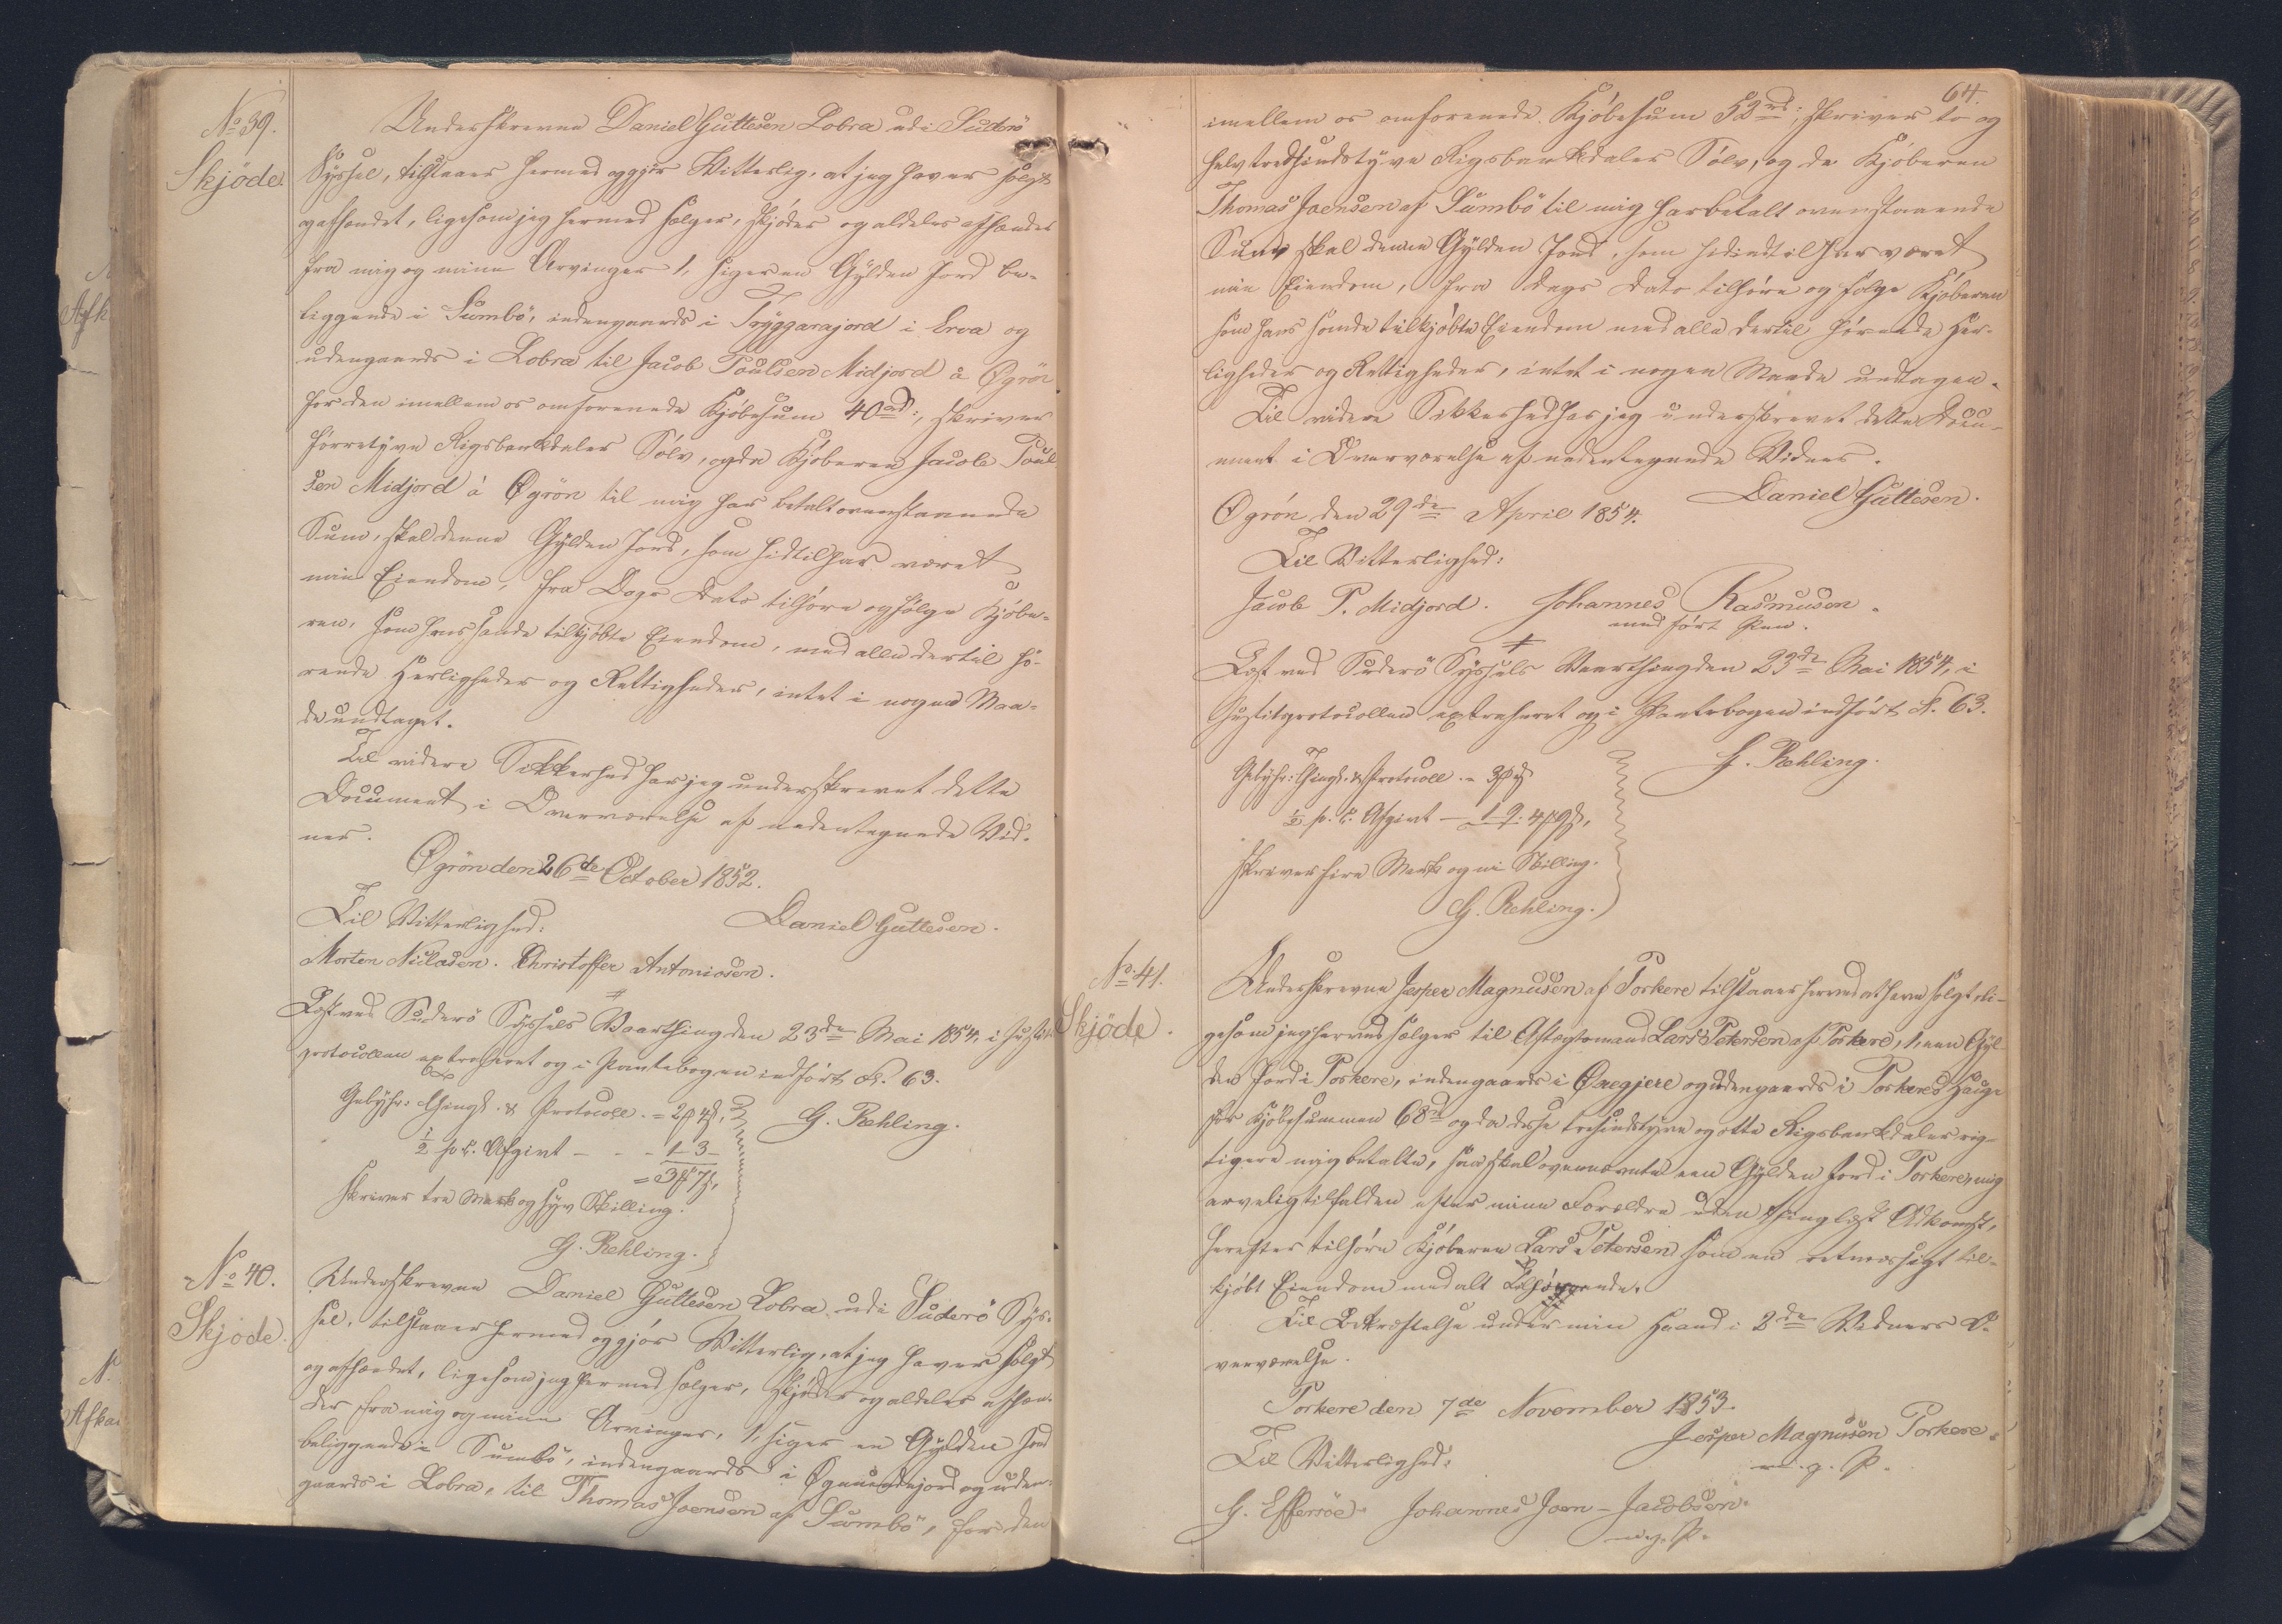 No 39.
Skjöde.
Underskrevne Daniel Guttesen Lobra udi Suderö
Syssel, tilstaaer hermed og gjör Vitterlig, at jeg haver solgt
og afhændet, ligesom jeg hermed sælger, skjöder og aldeles afhænder
fra mig og mine Arvinger 1, siger en Gylden Jord be-
liggende i Sumbö, indengaards i Tryggarajord i Erva og
udengaards i Lobra til Jacob Poulsen Midjord á Øgrön
for den imellem os omforenede Kjöbesum 40 rd:, skriver
förretyve Rigsbankdaler Sölv, og da Kjöberen Jacob Poul
sen Midjord á Øgrön til mig har betalt ovenstaaende
Sum, skal denne Gylden Jord, som hidtil har været
min Eiendom, fra Dags Dato tilhöre og fölge Kjöbe-
ren, som hans sande tilkjöbte Eiendom, med alle dertil hö-
rende Herligheder og Rettigheder, intet i nogen Maa-
de undtaget.
Til videre Sikkerhed har jeg underskrevet dette
Document i Overværelse af nedentegnede Vid-
ner.
Øgrön den 26de October 1852.
Til Vitterlighed:
Daniel Guttesen.
Morten Niclasen. Christoffer Antoniosen.
Læst ved Suderö Syssels Vaarthing den 23de Mai 1854, i Justits
protocollen extraheret og i Pantebogen indfört F. 63.
Gebyhr: Thingl. & Protocoll. = 2 4
G. Rehling.
1/2 p.C. Afgivt - - - 1 3
= 3 7
skriver tre Mark og syv Skilling.
G. Rehling.
No 40.
Skjöde.
Underskrevne Daniel Guttesen Lobra udi Suderö Sys-
sel, tilstaaer hermed og gjör Vitterlig, at jeg haver solgt
og afhændet, ligesom jeg hermed sælger, skjöder og aldeles afhæn-
der fra mig og mine Arvinger, 1, siger en Gylden Jord
beliggende i Sumbö, indengaards i Øgmundejord og uden-
gaards i Lobra, til Thomas Joensen af Sumbö, for den
64.
imellem os omforenede Kjöbesum 52 rd:, skriver to og
halvtredsindstyve Rigsbankdaler Sölv, og da Kjöberen
Thomas Joensen af Sumbö til mig har betalt ovenstaaende
Sum skal denne Gylden Jord, som hidindtil har været
min Eiendom, fra Dags Dato tilhöre og fölge Kjöberen
som hans sande tilkjöbte Eiendom med alle dertil hörende Her-
ligheder og Rettigheder, intet i nogen Maade undtagen.
Til videre Sikkerhed har jeg underskrevet dette Docu-
ment i Overværelse af nedentegnede Vidner.
Daniel Guttesen.
Øgrön den 29de April 1854.
Til Vitterlighed:
Jacob P. Midjord. Johannes Rasmusen.
med fört Pen.
Læst ved Suderö Syssels Vaarthing den 23de Mai 1854, i
Justitsprotocollen extraheret og i Pantebogen indfört F. 63.
G. Rehling.
Gebyhr: Thingl. & Protocoll. = 3
1/2 p.C. Afgivt - 1 9. 4 9
skriver fire Mark og ni Skilling.
G. Rehling.
No 41.
Skjöde.
Underskrevne Jesper Magnusen af Porkere tilstaaer herved at have solgt, li-
gesom jeg herved sælger til Aftægtsmand Lars Petersen af Porkere, 1, een Gyl
den Jord i Porkere, indengaards i Øregjere og udengaards i Porkeres Hauge
for Kjöbesummen 68 rd og da disse tresindstyve og otte Rigsbankdaler rig-
tigen mig betalte, saa skal ovennævnte een Gylden Jord i Porkere, mig
arveligtilfalden efter mine Forældre uden thinglæst Adkomst,
herefter tilhöre Kjöberen Lars Petersen som en retmæssigt til-
kjöbt Eiendom med alt Tilhörende.
Til Bekræftelse under min Haand i 2de Vidners O-
verværelse.
Porkere den 7de November 1853.
Jesper Magnusen Porkere.
m. g. P.
Til Vitterlighed:
G. Effersöe. Johannes Joen-Jacobsen.
m. g. P.